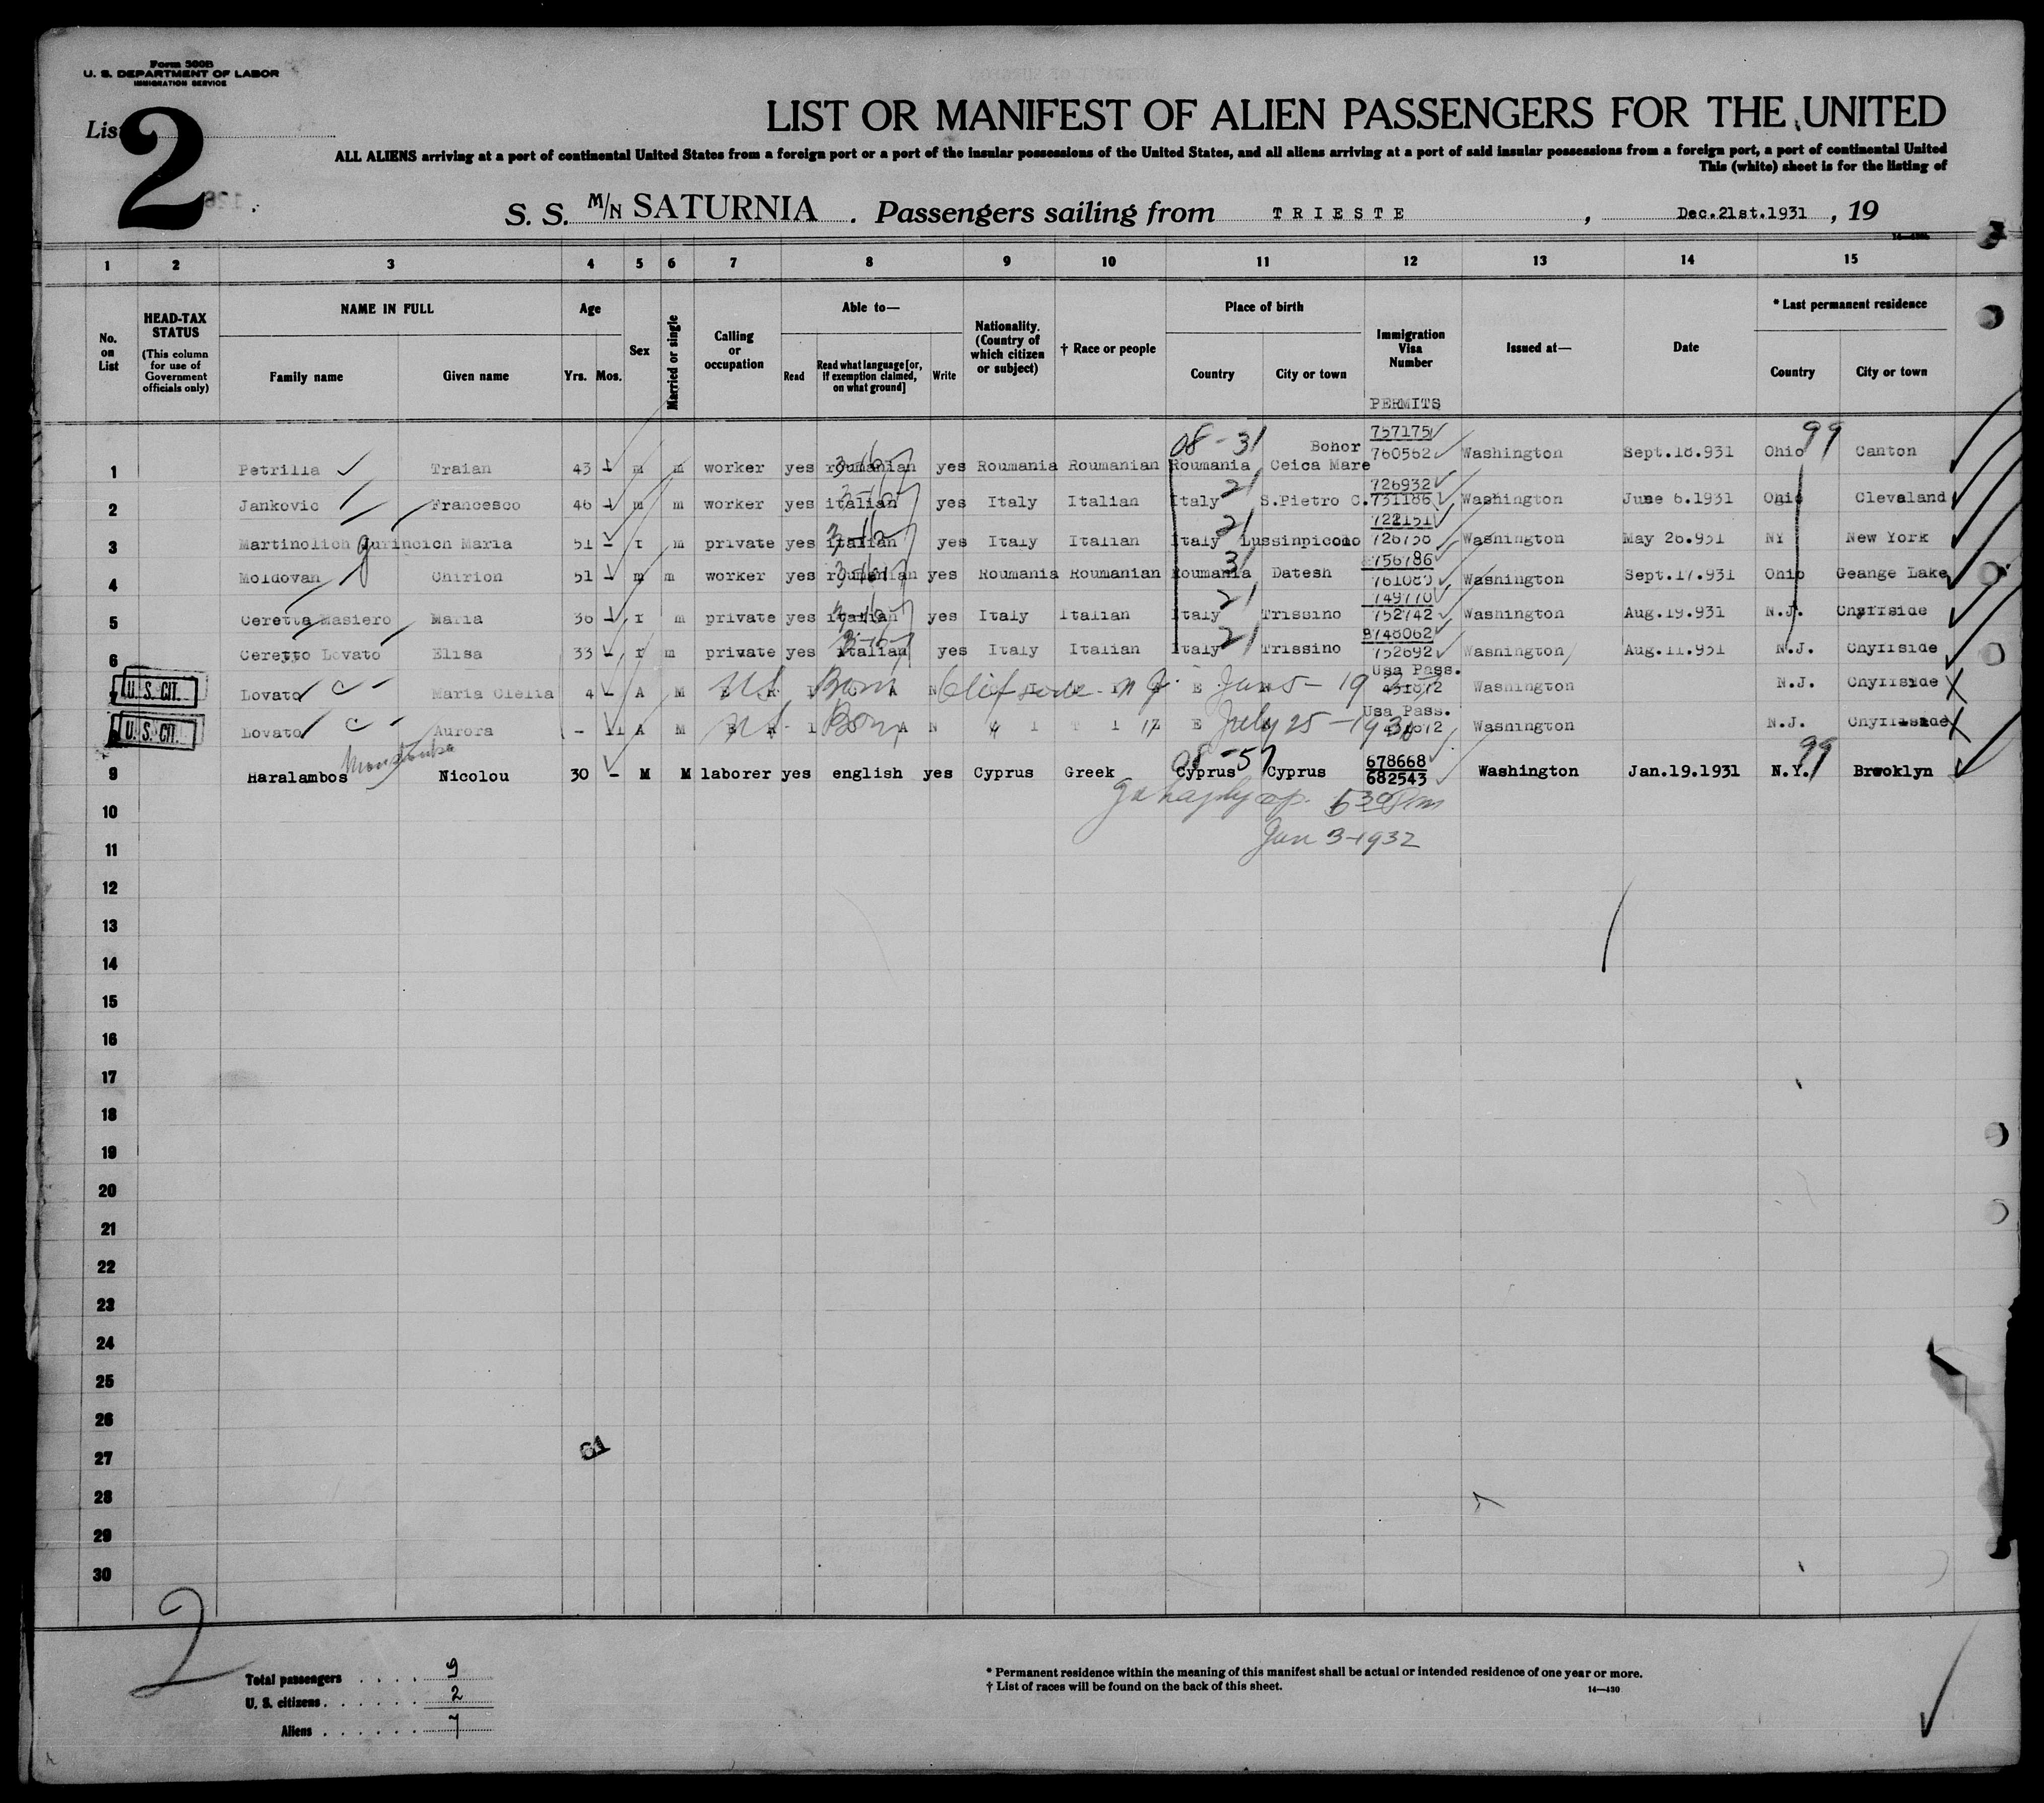 Form 500B
U. S. DEPARTMENT OF LABOR
IMMIGRATION SERVICE
List 2
LIST OR MANIFEST OF ALIEN PASSENGERS FOR THE UNITED
ALL ALIENS arriving at a port of continental United States from a foreign port or a port of the insular possessions of the United States, and all aliens arriving at a port of said insular possessions from a foreign port, a port of continental United
This (white) sheet is for the listing of
S. S. M/N SATURNIA . Passengers sailing from TRIESTE , Dec.21st.1931 , 19
1 2 3 4 5 6 7 8 9 10 11 12 13 14 15
No. on List
HEAD-TAX STATUS (This column for use of Government officials only)
NAME IN FULL
Family name Given name
Age
Yrs. Mos.
Sex
Married or single
Calling or occupation
Able to—
Read Read what language [or, if exemption claimed, on what ground] Write
Nationality. (Country of which citizen or subject)
† Race or people
Place of birth
Country City or town
Immigration Visa Number
PERMITS
Issued at—
Date
* Last permanent residence
Country City or town
08-31 Bohor 757175 99
1 Petrilla Traian 43 - m m worker yes roumanian yes Roumania Roumanian Roumania Ceica Mare 760562 Washington Sept.18.931 Ohio Canton
21 726932
2 Jankovic Francesco 46 - m m worker yes italian yes Italy Italian Italy S.Pietro C. 731186 Washington June 6.1931 Ohio Cleveland
21 722151
3 Martinolich Gurincich Maria 51 - f m private yes italian yes Italy Italian Italy Lussinpiccolo 726758 Washington May 26.931 NY New York
31 756786
4 Moldovan Chirion 51 - m m worker yes roumanian yes Roumania Roumanian Roumania Datesh Washington Sept.17.931 Ohio Geange Lake
21 749770
5 Ceretta Masiero Maria 36 - f m private yes italian yes Italy Italian Italy Trissino 752742 Washington Aug.19.931 N.J. Chyffside
21 748062
6 Ceretto Lovato Elisa 33 - f m private yes italian yes Italy Italian Italy Trissino 752692 Washington Aug.11.931 N.J. Chyffside
Usa Pass.
U. S. CIT. Lovato Maria Clelia 4 - A M E R I C A N C I T I Z E N US Born Cliffside N J. Jan 5-19 Washington N.J. Chyffside
Usa Pass.
U. S. CIT. Lovato Aurora - A M E R I C A N C I T I Z E N US Born " " July 25-1931 Washington N.J. Chyffside
08-57 678668 99
9 Haralambos Nicolou 30 - M M laborer yes english yes Cyprus Greek Cyprus Cyprus 682543 Washington Jan.19.1931 N.Y. Brooklyn
10 5 30 Pm
11 Jan 3-1932
12
13
14
15
16
17
18
19
20
21
22
23
24
25
26
27
28
29
30
61
2
Total passengers . . . . 9
U. S. citizens . . . . . . 2
Aliens . . . . . . 7
* Permanent residence within the meaning of this manifest shall be actual or intended residence of one year or more.
† List of races will be found on the back of this sheet.
14—430